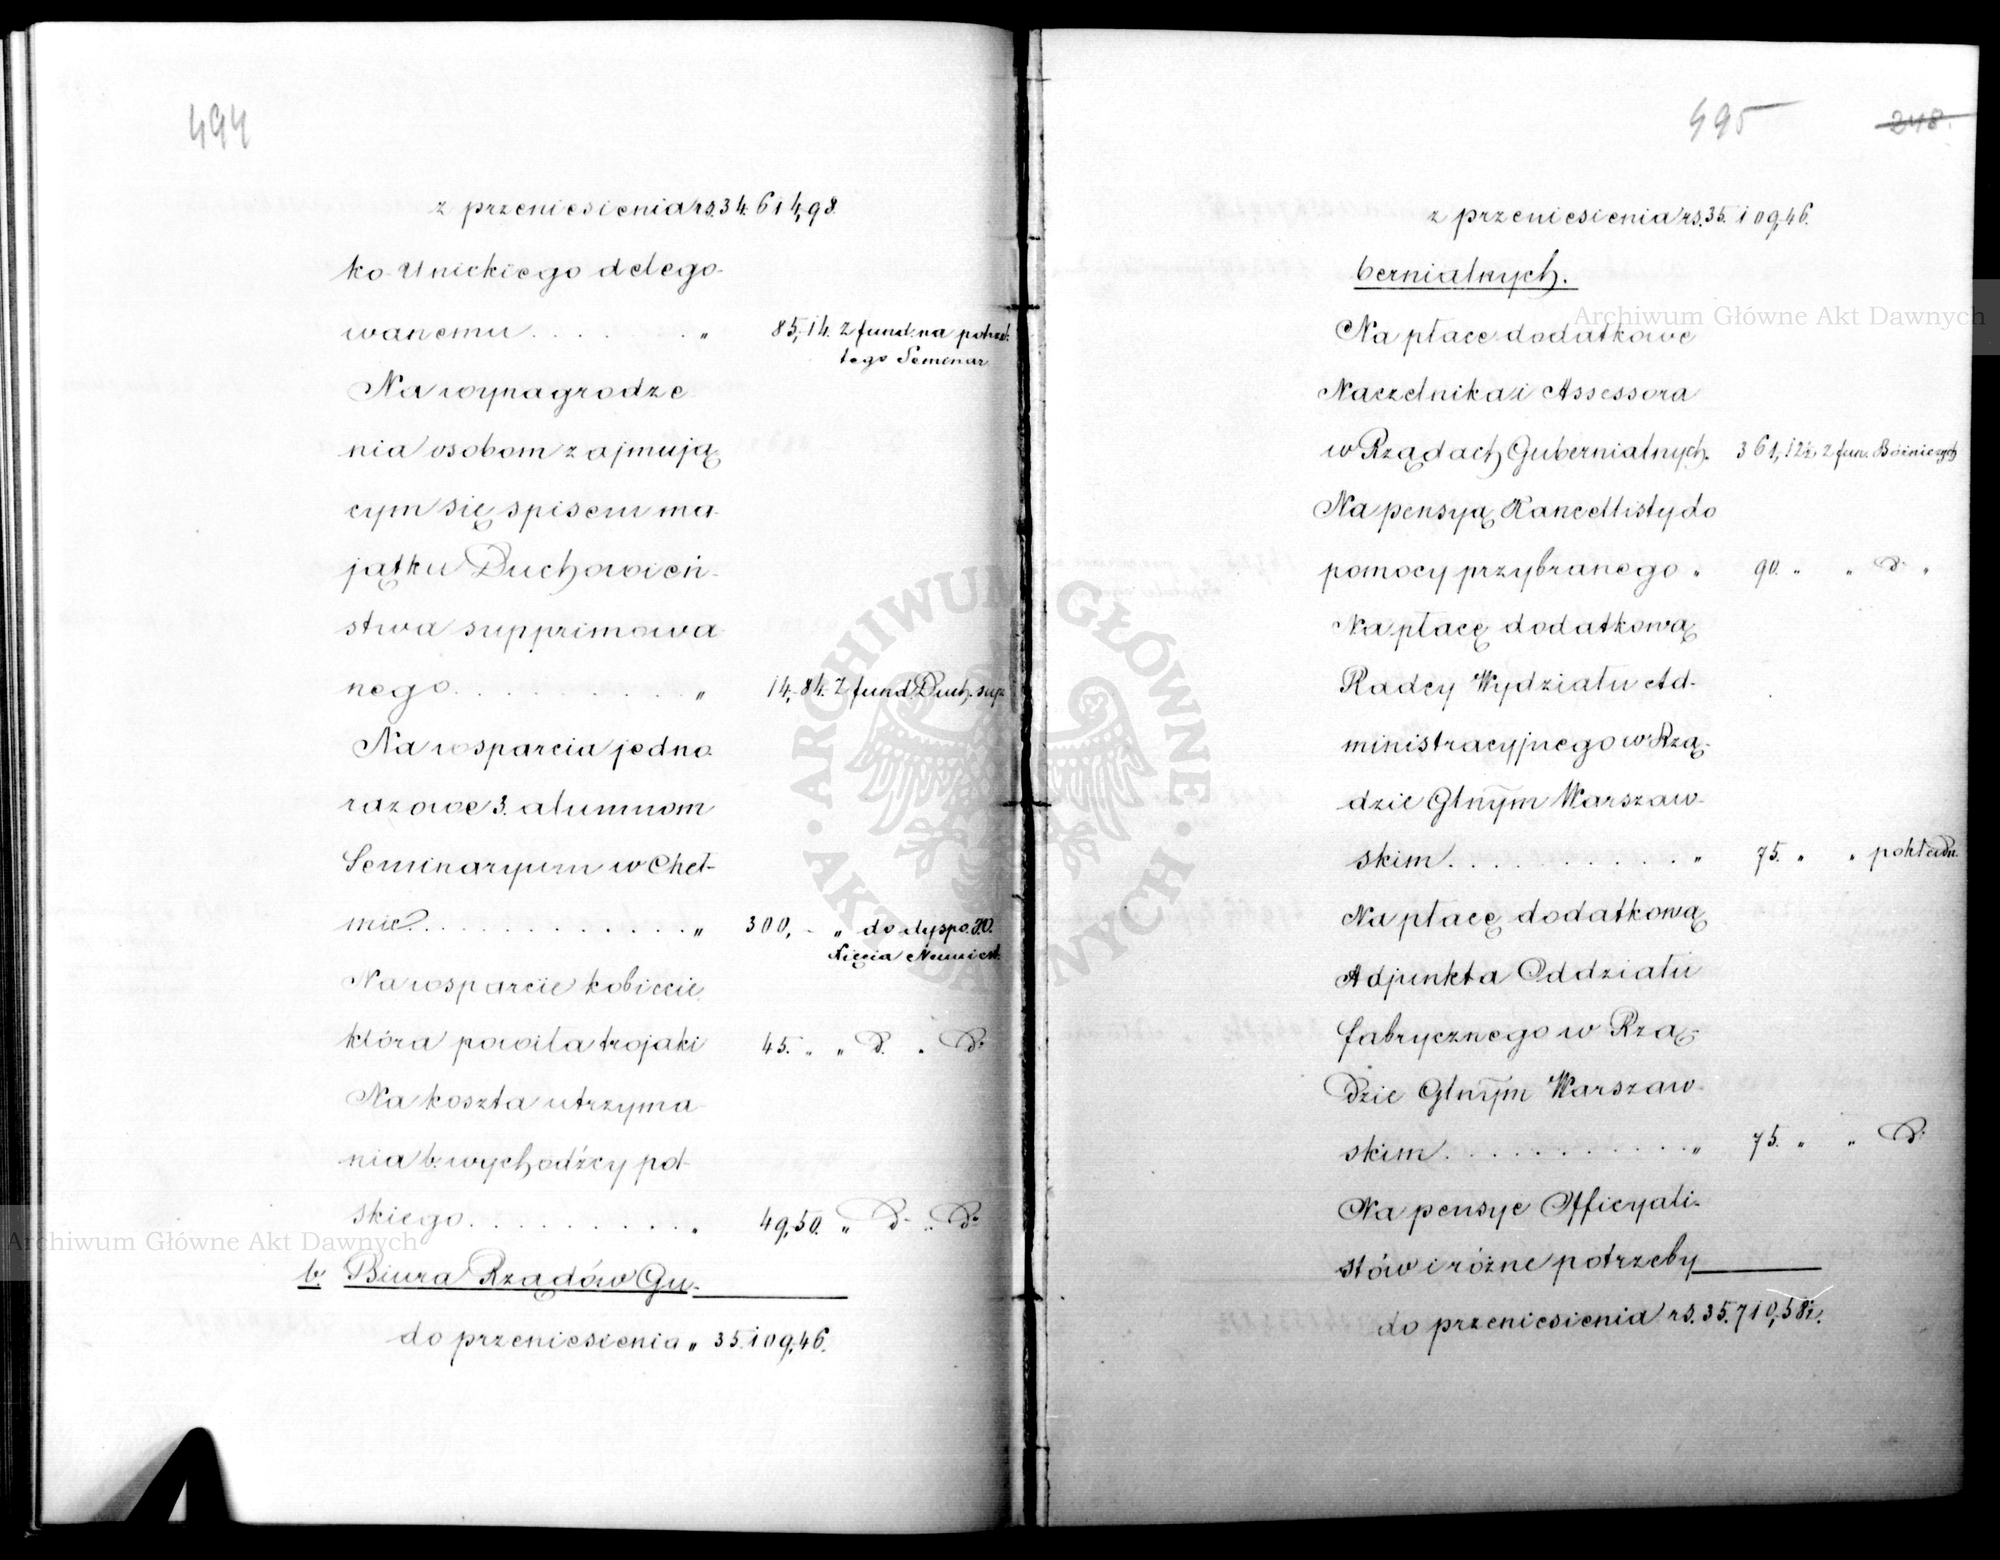 494
z przeniesienia rs. 34.614,98.
ko-Unickiego delego-
wanemu . . . . . . . " 85,14. z fund. na potrzeb.
tego Semenar
Na wynagrodze-
nia osobom zajmują-
cym się spisem ma-
jątku Duchowień-
stwa supprimowa-
nego . . . . . . . . . . " 14,84. z fund. Duch. sup.
Na wsparcia jedno-
razowe 3. alumnom
Seminaryum w Cheł-
mie . . . . . . . . . . . . " 300, - " do dyspo. J.O.
Xięcia Namiest.
Na wsparcie kobiecie
która powiła trojaki 45. " " d. " do
Na koszta utrzyma-
nia b. wychodźcy pol-
skiego . . . . . . . . . . " 49,50. " do " do
b. Biura Rządów Gu-
do przeniesienia " 35.109,46.
495
248.
z przeniesienia rs. 35.109,46.
bernialnych.
Na płace dodatkowe
Naczelnika i Assessora
w Rządach Gubernialnych. 361,12½ z fun. Bóżniczych
Na pensyą Kancellisty do
pomocy przybranego " 90. " " do "
Na płacę dodatkową
Radcy Wydziału Ad-
ministracyjnego w Rzą-
dzie Glnym Warszaw-
skim . . . . . . . . . . . " 75. " " pokładn.
Na płacę dodatkową
Adjunkta Oddziału
fabrycznego w Rzą-
dzie Glnym Warszaw-
skim . . . . . . . . . . . " 75. " " do
Na pensye Officyali-
stów i różne potrzeby
do przeniesienia rs. 35.710,58½.
Archiwum Główne Akt Dawnych
Archiwum Główne Akt Dawnych
ARCHIWUM GŁÓWNE AKT DAWNYCH